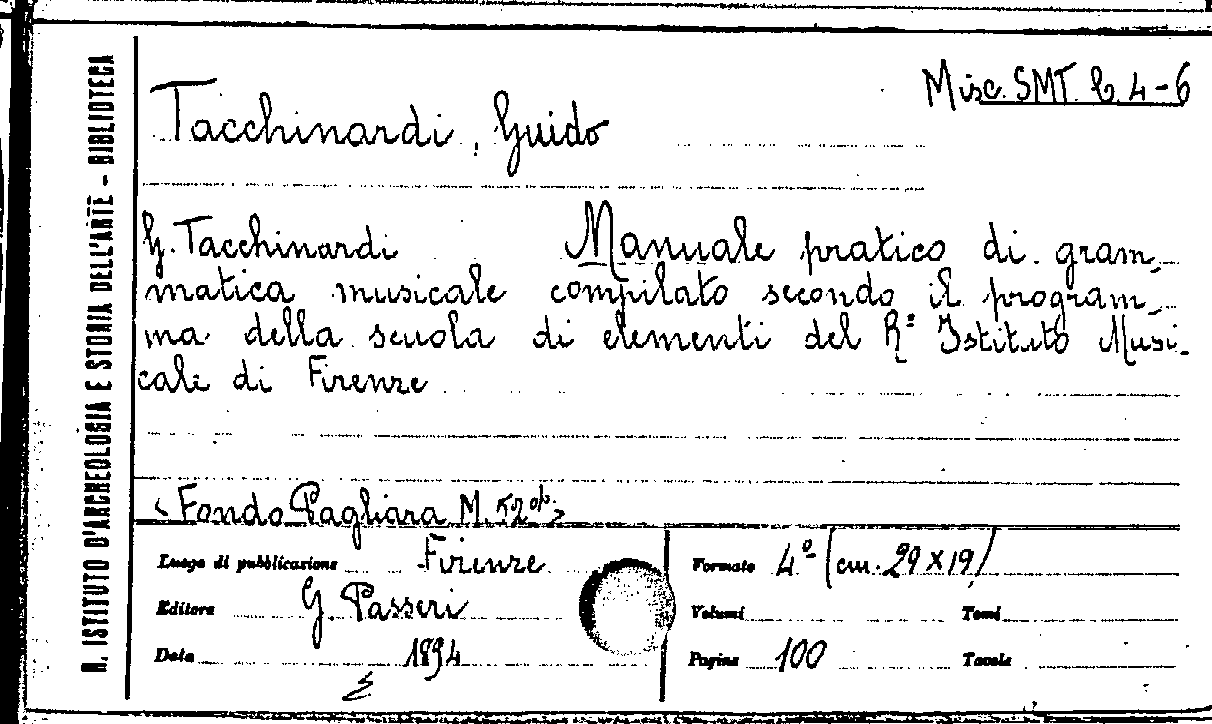 R. ISTITUTO D'ARCHEOLOGIA E STORIA DELL'ARTE - BIBLIOTECA
Misc. SMT. b. 4-6
Tacchinardi, Guido
G. Tacchinardi Manuale pratico di gram_
matica musicale compilato secondo il program_
ma della scuola di elementi del R.º Istituto Musi_
cale di Firenze
Fondo Pagliara M.
Luogo di pubblicazione Firenze
Editore G. Passeri
Data 1894
Formato 4º (cm. 29 x 19)
Volumi Tomi
Pagine 100 Tavole